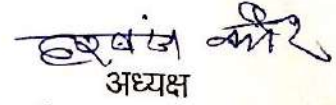 हरबंश कौर
अध्यक्ष